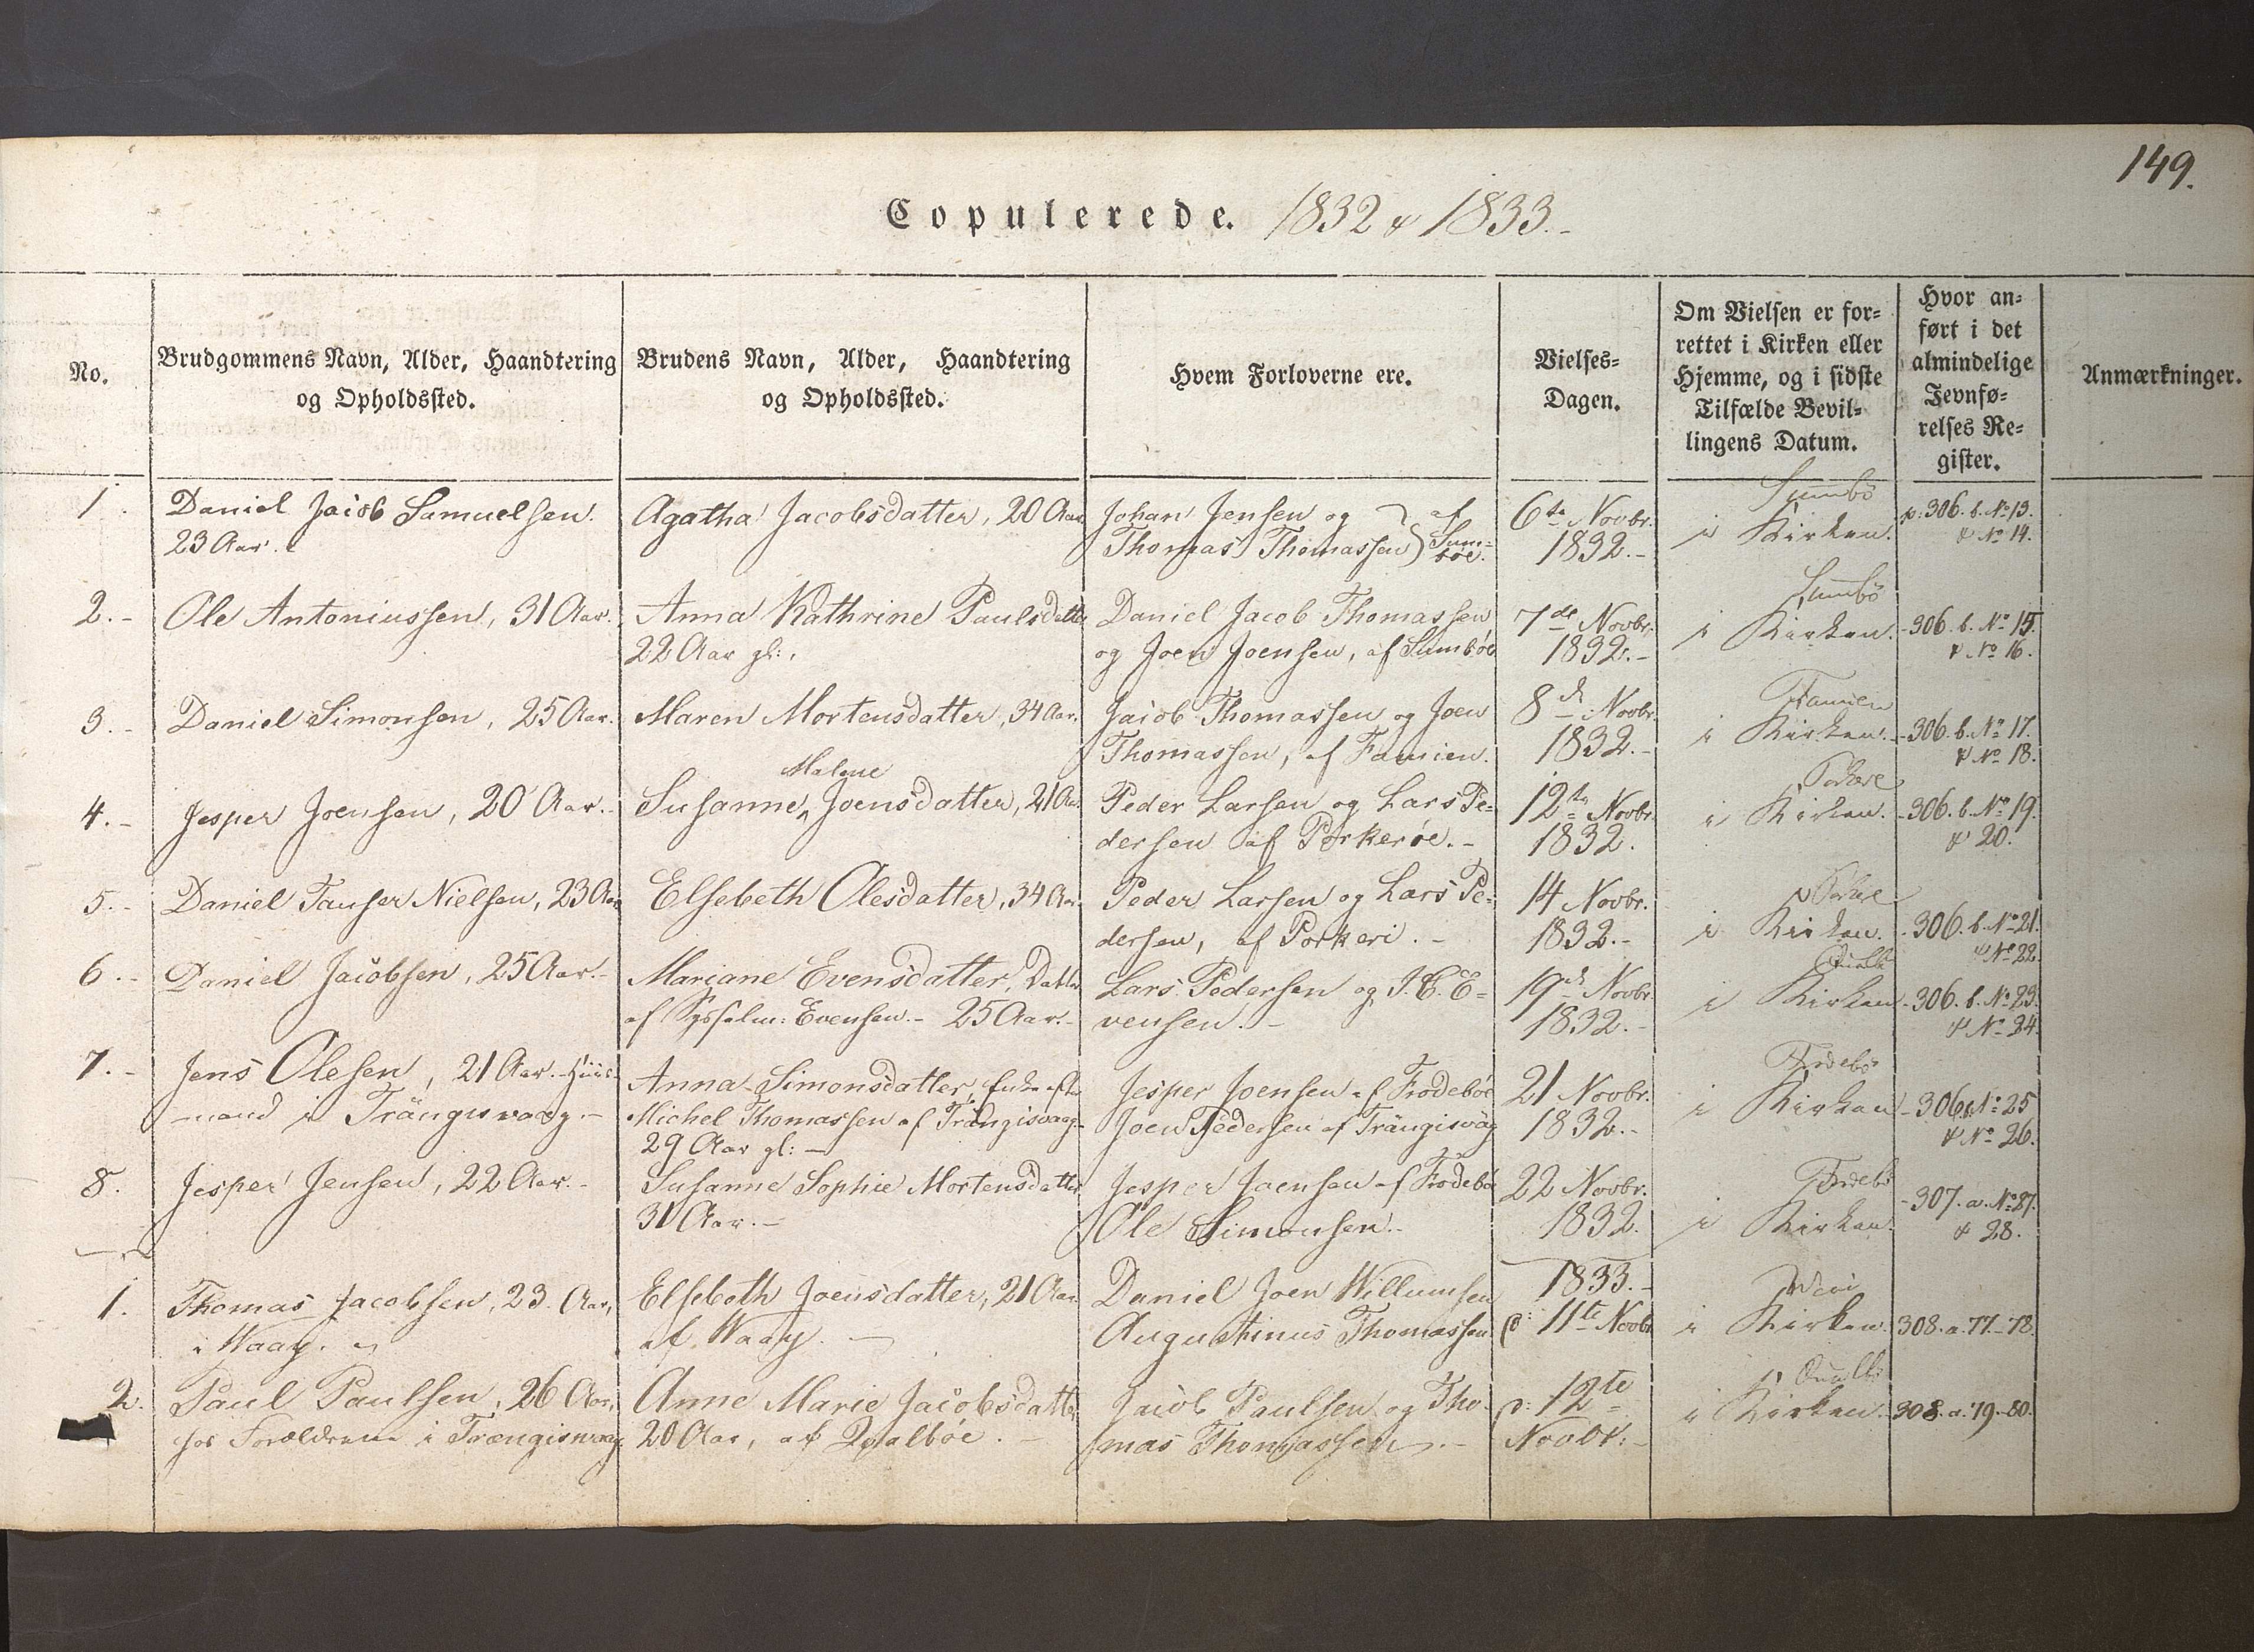 149.
Copulerede. 1832 & 1833.-
No.
Brudgommens Navn, Alder, Haandtering
og Opholdssted.
Brudens Navn, Alder, Haandtering
og Opholdssted.
Hvem Forloverne ere.
Vielses-
Dagen.
Om Vielsen er for-
rettet i Kirken eller
Hjemme, og i sidste
Tilfælde Bevil-
lingens Datum.
Hvor an-
ført i det
almindelige
Jevnfø-
relses Re-
gister.
Anmærkninger.
1.
Daniel Jacob Samuelsen.
23 Aar.
Agatha Jacobsdatter, 20 Aar
Johan Jensen og
Thomas Thomassen
af
Sum-
böe.
6te Novbr.
1832.-
Sumbö
i Kirken.
p: 306. b. No 13.
& No 14.
2.-
Ole Antoniussen, 31 Aar.
Anna Kathrine Paulsdatter
22 Aar gl:.
Daniel Jacob Thomassen
og Joen Joensen, af Sumböe
7de Novbr.
1832.-
Sumbö
i Kirken.
-306. b. No 15.
& No 16.
3.-
Daniel Simonsen, 25 Aar.
Maren Mortensdatter, 34 Aar.
Jacob Thomassen og Joen
Thomassen, af Famien.
8d Novbr.
1832.-
Famien
i Kirken.
-306. b. No 17.
& No 18.
4.-
Jesper Joensen, 20 Aar.-
Malene
Susanne Joensdatter, 21 Aar
Peder Larsen og Lars Pe-
dersen af Porkeröe.-
12te Novbr.
1832.
Porkere
i Kirken.
-306. b. No 19.
& 20.
5.-
Daniel Tauser Nielsen, 23 Aar
Elsebeth Olesdatter, 34 Aar
Peder Larsen og Lars Pe-
dersen, af Porkeri.-
14 Novbr.
1832.-
Porkere
i Kirken.
-306. b. No 21.
& No 22.
6.-
Daniel Jacobsen, 25 Aar.-
Mariane Evensdatter, Datter
af Sysselm: Evensen.- 25 Aar.-
Lars Pedersen og J. C. E-
vensen.-
19d Novbr.
1832.-
Qualbö
i Kirken
-306. b. No 23.
& No 24.
7.-
Jens Olesen, 21 Aar.- Huus-
mand i Trängisvaag.-
Anna Simonsdatter, Enke efter
Michel Thomassen af Trängisvaag-
29 Aar gl:-
Jesper Joensen af Frodeböe
Joen Pedersen af Trängisvåg
21 Novbr.
1832.-
Frodebö
i Kirken
-306 b. No 25
& No 26.
8.
Jesper Jensen, 22 Aar.-
Susanne Sophie Mortensdatter
31 Aar.-
Jesper Joensen af Frodeböe
Ole Simonsen.-
22 Novbr.
1832.
Frodebö
i Kirken.
-307. a. No 27.
& 28.
1.
Thomas Jacobsen, 23. Aar,
i Waag.
Elsebeth Joensdatter, 21 Aar
af Waag.-
Daniel Joen Willumsen
Augustinus Thomassen
1833.-
D: 11te Novbr
i Kirken.
308. a. 77.-78.
2.
Paul Paulsen, 26 Aar,
hos Forældrene i Trængisvaag
Anne Marie Jacobsdatter
20 Aar, af Qvalböe.-
Jacob Paulsen og Tho-
mas Thomassen.-
D: 12te
Novbr:-
Qualbö
i Kirken.
308. a. 79.-80.